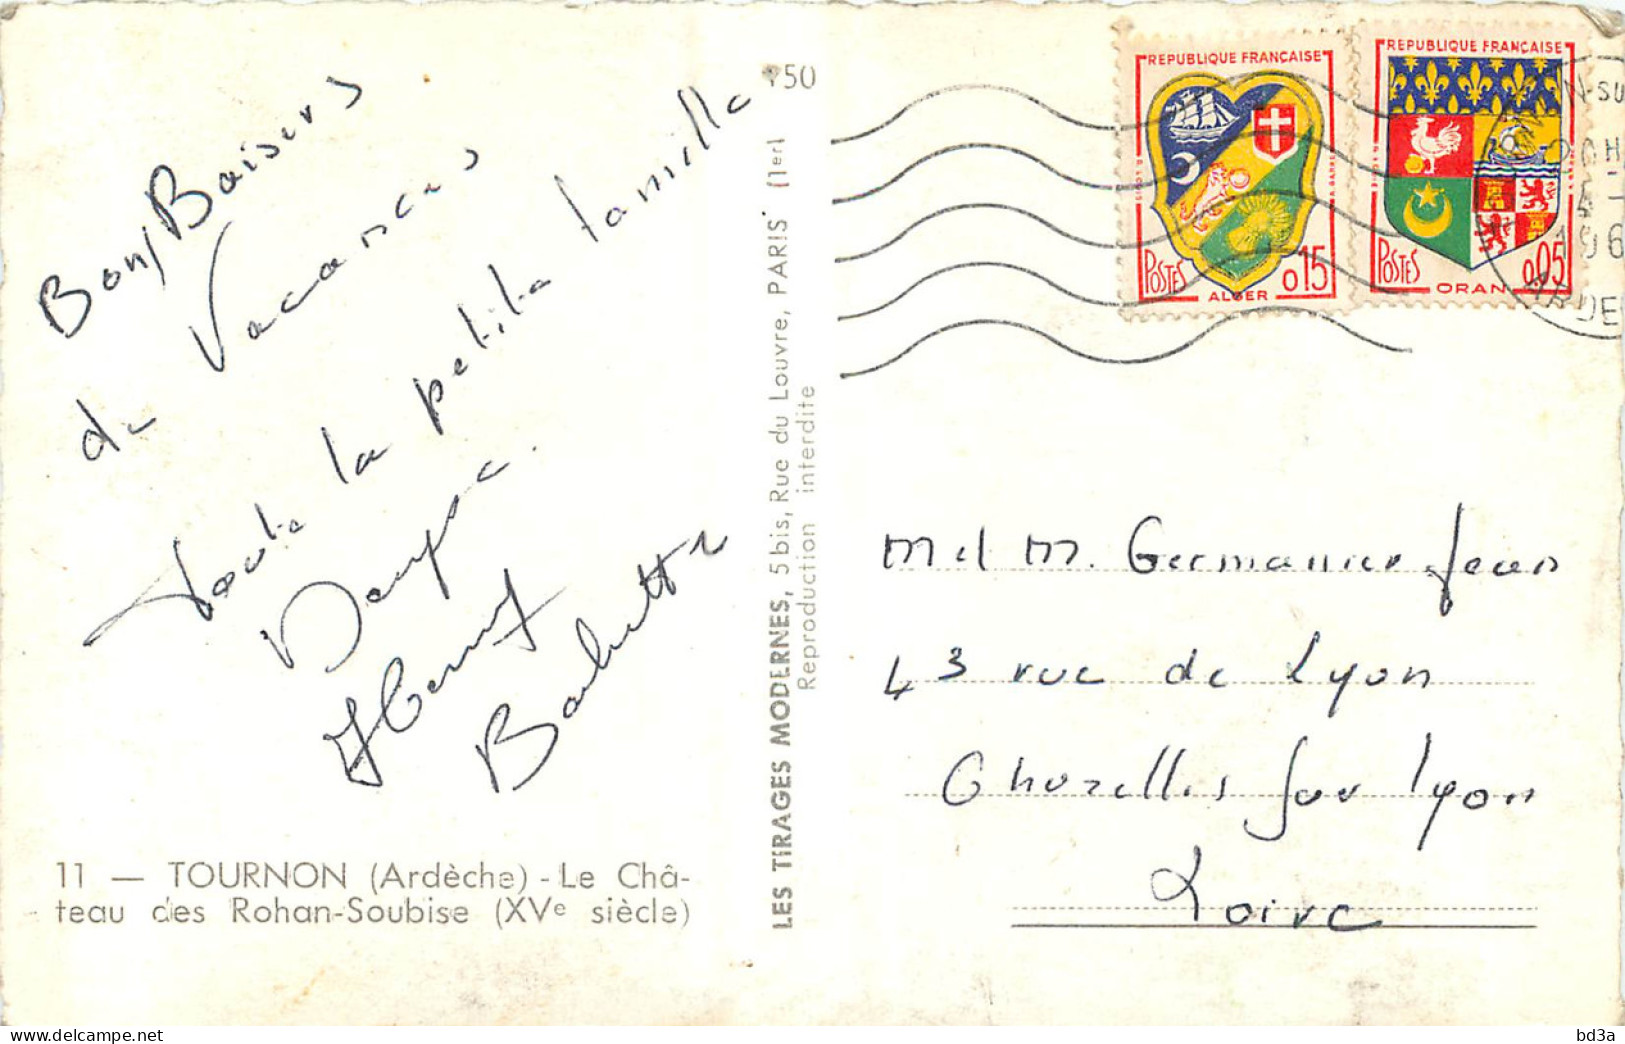 Bons Baisers
de Vacances
toute la petite famille
Babette
11 — TOURNON (Ardèche) - Le Châ-
teau des Rohan-Soubise (XVe siècle)
LES TIRAGES MODERNES, 5 bis, Rue du Louvre, PARIS (1er)
Reproduction interdite
50
REPUBLIQUE FRANÇAISE
POSTES
ALGER
0,15
REPUBLIQUE FRANÇAISE
POSTES
ORAN
0,05
M et M. Germanier Jean
43 rue de Lyon
Chazelles sur Lyon
Loire
bd3a